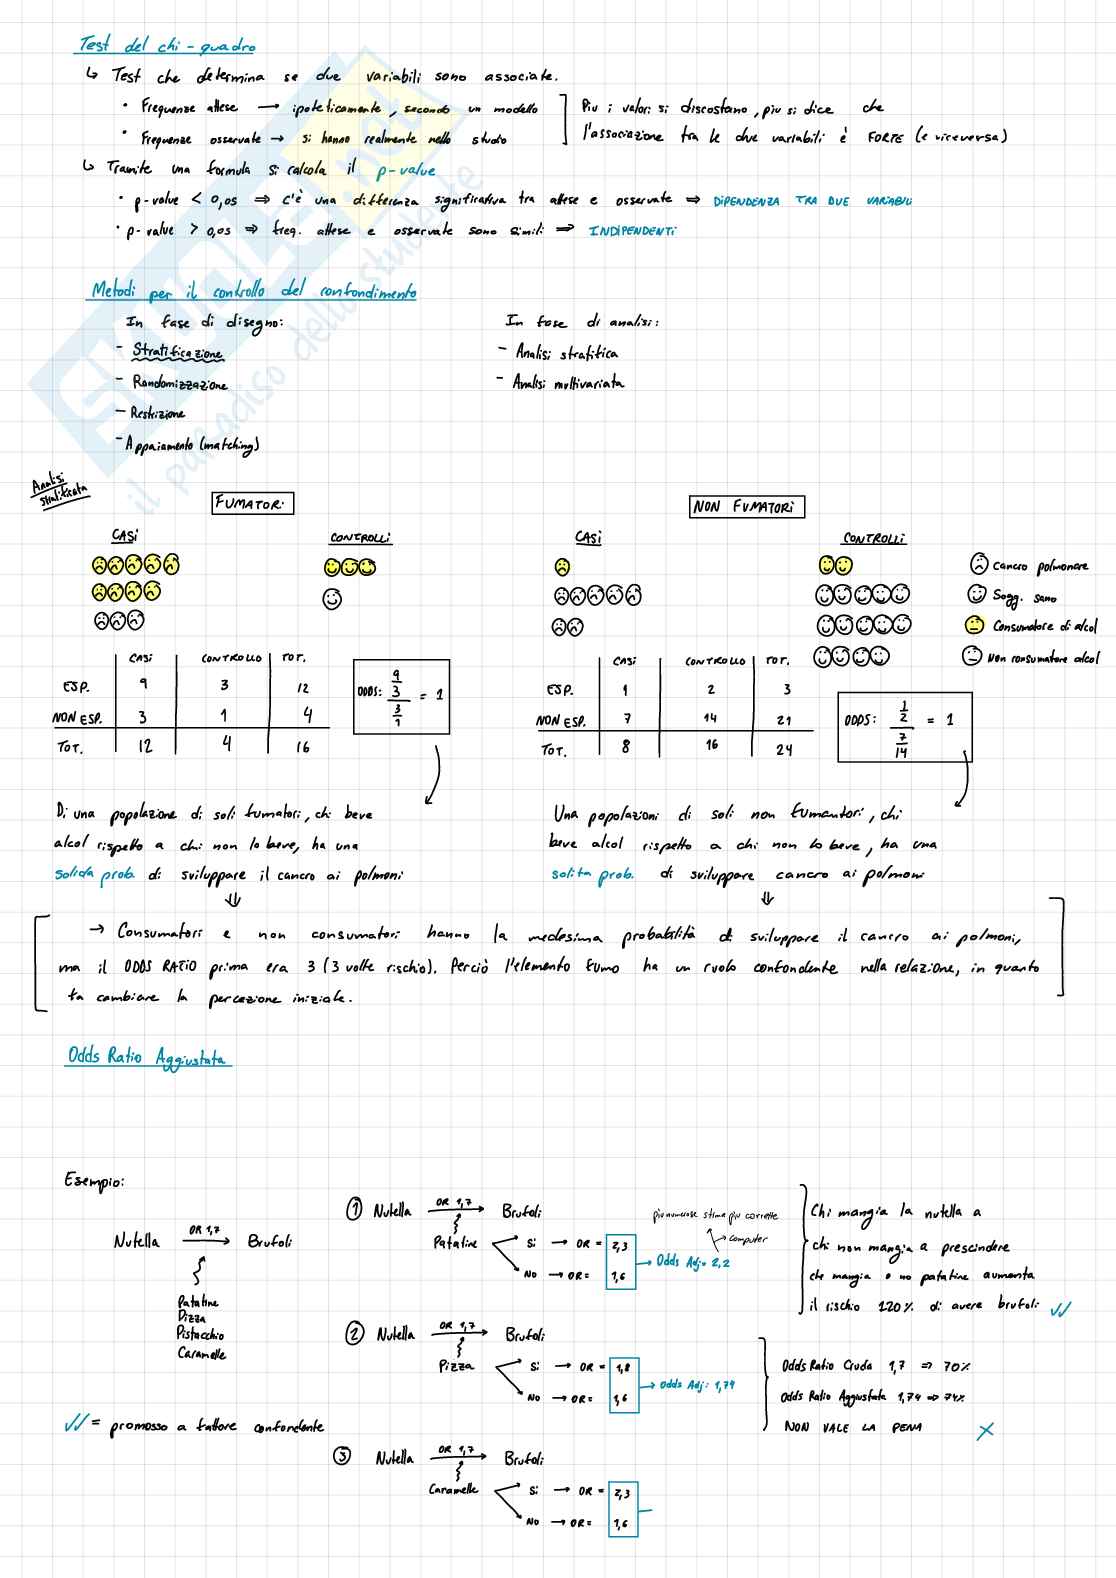 Test del chi-quadro
↳ Test che determina se due variabili sono associate.
• Frequenze attese → ipoteticamente, secondo un modello
• Frequenze osservate → si hanno realmente nello studio
Più i valori si discostano, più si dice che
l'associazione tra le due variabili è FORTE (e viceversa)
↳ Tramite una formula si calcola il p-value
• p-value < 0,05 ⇒ c'è una differenza significativa tra attese e osservate ⇒ DIPENDENZA TRA DUE VARIABILI
• p-value > 0,05 ⇒ freq. attese e osservate sono simili ⇒ INDIPENDENTI
Metodi per il controllo del confondimento
In fase di disegno:
- Stratificazione
- Randomizzazione
- Restrizione
- Appaiamento (matching)
In fase di analisi:
- Analisi stratifica
- Analisi multivariata
Analisi
stratificata
FUMATORI
CASI
CONTROLLI
CASI CONTROLLO TOT.
ESP. 9 3 12
NON ESP. 3 1 4
TOT. 12 4 16
ODDS: 9/3 / 3/1 = 1
NON FUMATORI
CASI
CONTROLLI
Cancro polmonare
Sogg. sano
Consumatore di alcol
Non consumatore alcol
CASI CONTROLLO TOT.
ESP. 1 2 3
NON ESP. 7 14 21
TOT. 8 16 24
ODDS: 1/2 / 7/14 = 1
Di una popolazione di soli fumatori, chi beve
alcol rispetto a chi non lo beve, ha una
solida prob. di sviluppare il cancro ai polmoni
Una popolazioni di soli non fumantori, chi
beve alcol rispetto a chi non lo beve, ha una
solita prob. di sviluppare cancro ai polmoni
→ Consumatori e non consumatori hanno la medesima probabilità di sviluppare il cancro ai polmoni,
ma il ODDS RATIO prima era 3 (3 volte rischio). Perciò l'elemento fumo ha un ruolo confondente nella relazione, in quanto
fa cambiare la percezione iniziale.
Odds Ratio Aggiustata
Esempio:
Nutella OR 1,7 → Brufoli
Patatine
Pizza
Pistacchio
Caramelle
✓✓ = promosso a fattore confondente
① Nutella OR 1,7 → Brufoli
Patatine
Si → OR = 2,3
No → OR = 1,6
→ Odds Adj = 2,2
computer
più numerose stima più corrette
Chi mangia la nutella a
chi non mangia a prescindere
che mangia o no patatine aumenta
il rischio 120% di avere brufoli ✓✓
② Nutella OR 1,7 → Brufoli
Pizza
Si → OR = 1,8
No → OR = 1,6
→ Odds Adj: 1,74
Odds Ratio Cruda 1,7 ⇒ 70%
Odds Ratio Aggiustata 1,74 ⇒ 74%
NON VALE LA PENA X
③ Nutella OR 1,7 → Brufoli
Caramelle
Si → OR = 2,3
No → OR = 1,6
SKUOLA.net
il paradiso dello studente